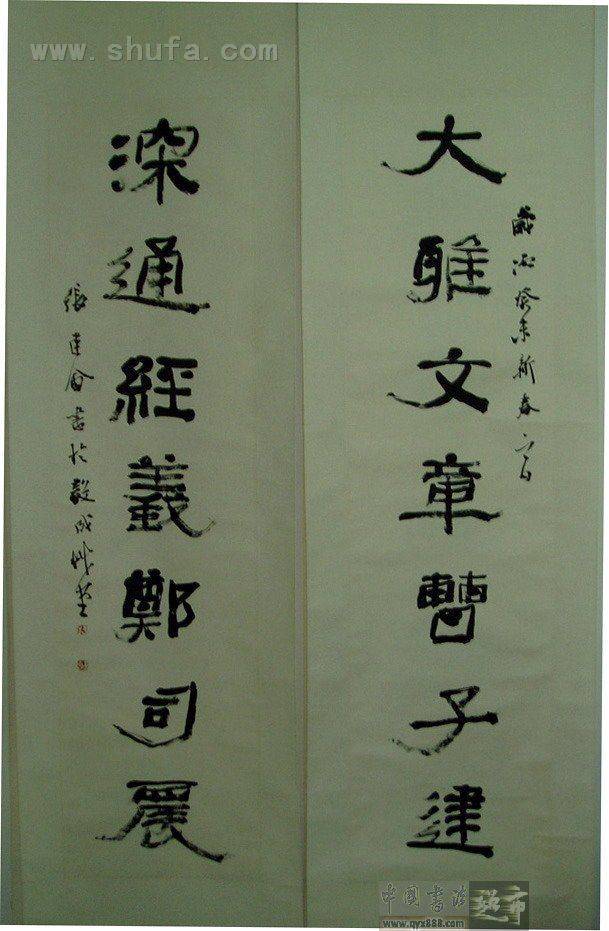 www.shufa.com
歲次癸未新春
大雅文章曹子建
深通經義鄭司農
張建會書於
中國書法超市
www.qyx888.com